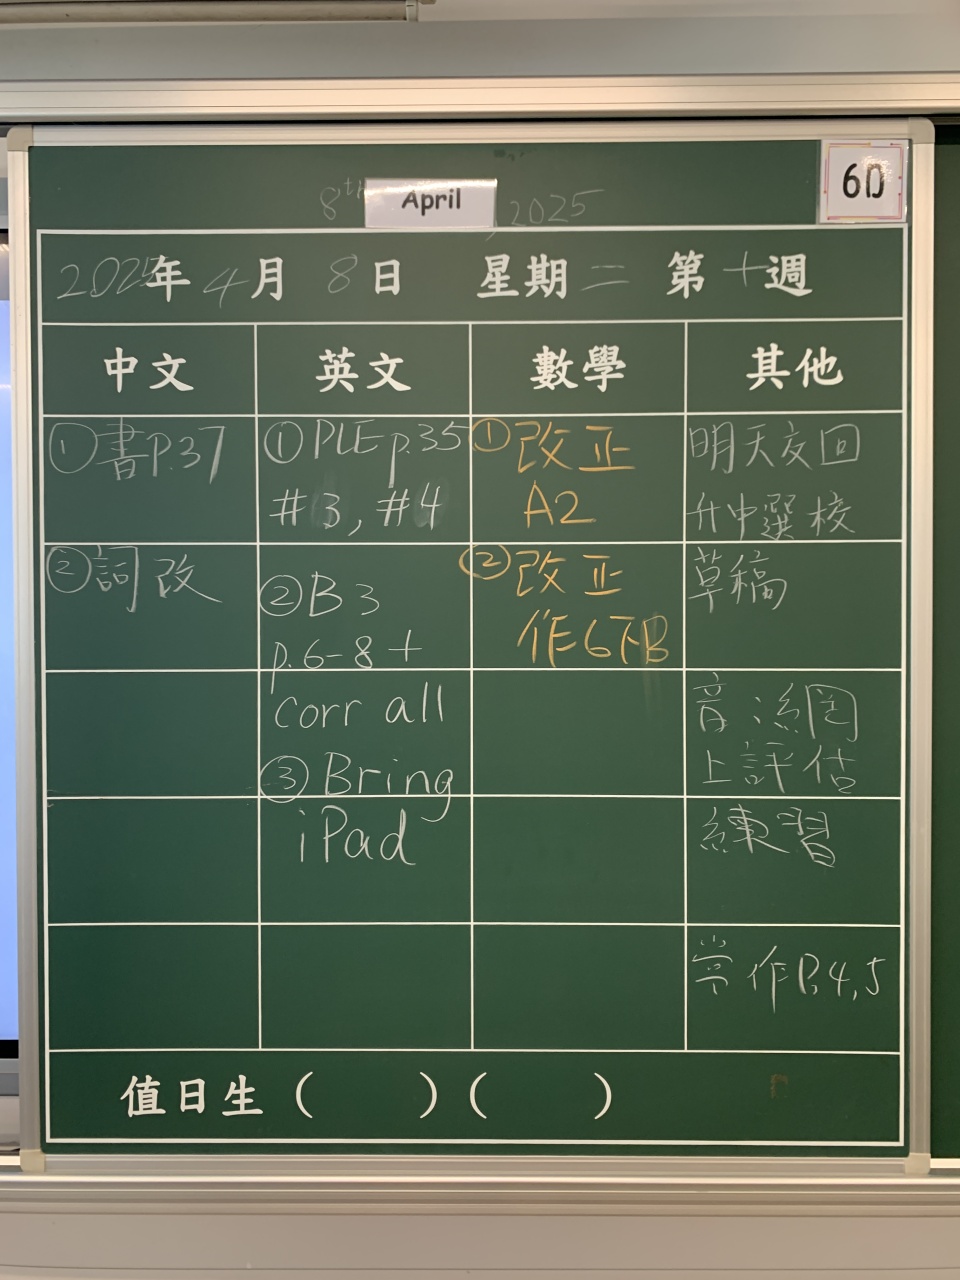 8th April, 2025
6D
2025年4月8日 星期二 第十週
中文 英文 數學 其他
①書P.37
②詞改
①PLE p.35
#3, #4
②B3
p.6-8 +
corr all
③Bring
iPad
①改正
A2
②改正
作6下B
明天交回
升中選校
草稿
音:網
上評估
練習
常作P.4,5
值日生( )( )